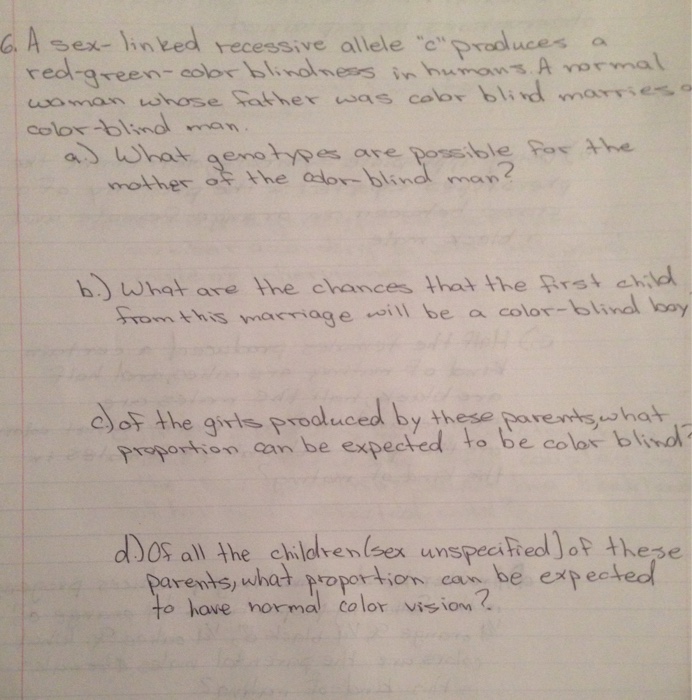 6. A sex-linked recessive allele "c" produces a
red-green-color blindness in humans. A normal
woman whose father was color blind marries a
color-blind man.
a.) What genotypes are possible for the
mother of the color-blind man?
b.) What are the chances that the first child
from this marriage will be a color-blind boy
c.) of the girls produced by these parents, what
proportion can be expected to be color blind?
d.) Of all the children (sex unspecified) of these
parents, what proportion can be expected
to have normal color vision?